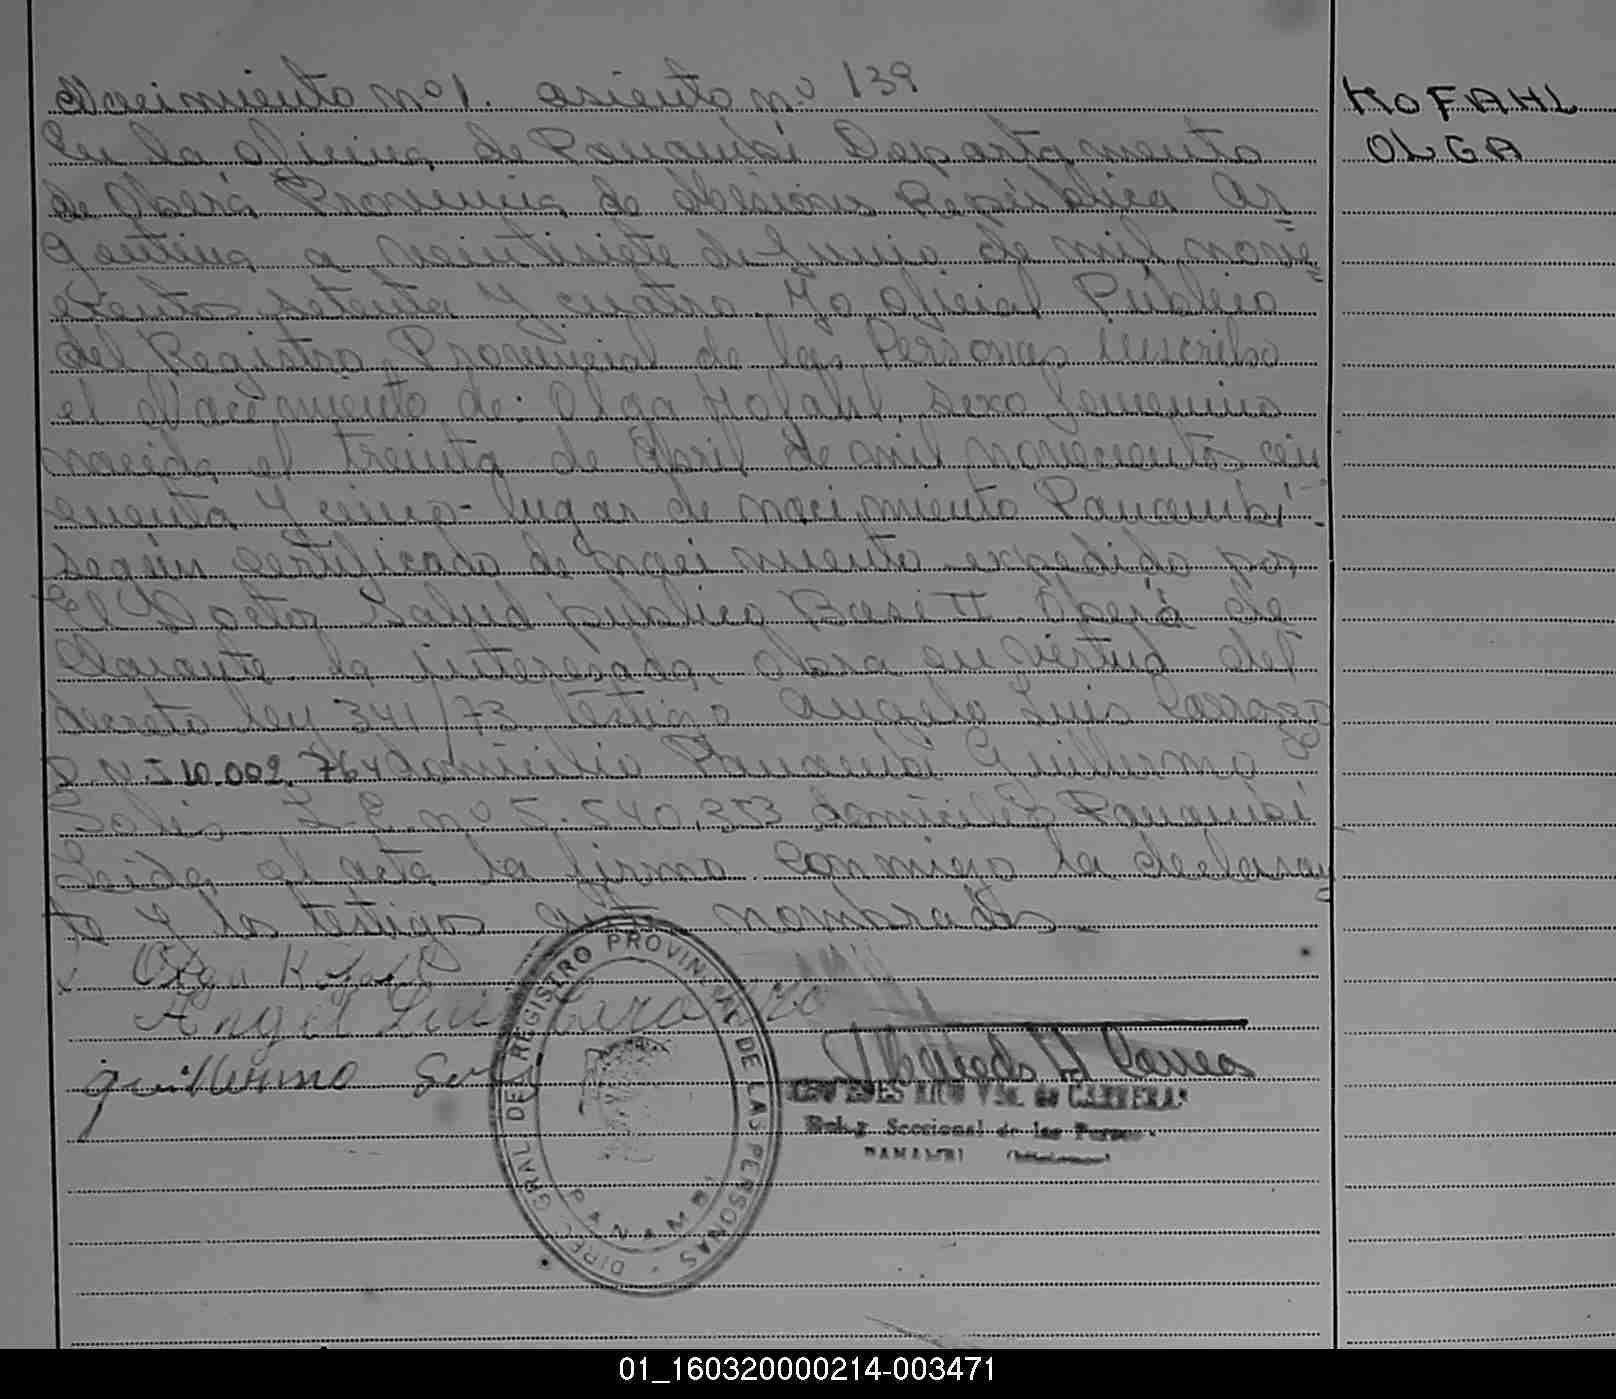 Nacimiento nº 1. asiento nº 139
KOFAHL
OLGA
En la oficina de Panambi Departamento
de Oberá Provincia de Misiones Republica Ar
gentina a veintisiete de Junio de mil nove
cientos setenta y cuatro. Yo oficial Público
del Registro Provincial de las Personas inscribo
el Nacimiento de: Olga Kofahl, sexo femenino
nacida el treinta de Abril de mil novecientos cin
cuenta y cinco - lugar de nacimiento Panambi -
según certificado de nacimiento expedido por
El Doctor Salud publica Base II Oberá de
clarante la interesada obra en virtud del
decreto ley 341/73 testigo Angelo Luis Carrazo
D.N.I 10.009.764 domicilio Panambi Guillermo
Solis L.E. nº 5.540.353 domicilio Panambi
Leida el acta la firma conmigo la declaran
te y los testigos ante nombrados -
Olga Kofahl
Angel Luis Carazo
guillermo
DIREC. GRAL DEL REGISTRO PROVINCIAL DE LAS PERSONAS
PANAMBI
de CARRERA
Seccional de las
PANAMBI (Misiones)
01_160320000214-003471